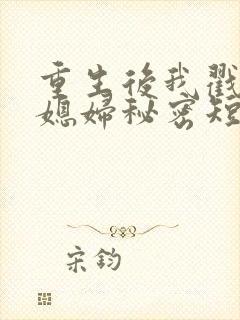 重生後我戳
媳婦秘密短
宋鈞